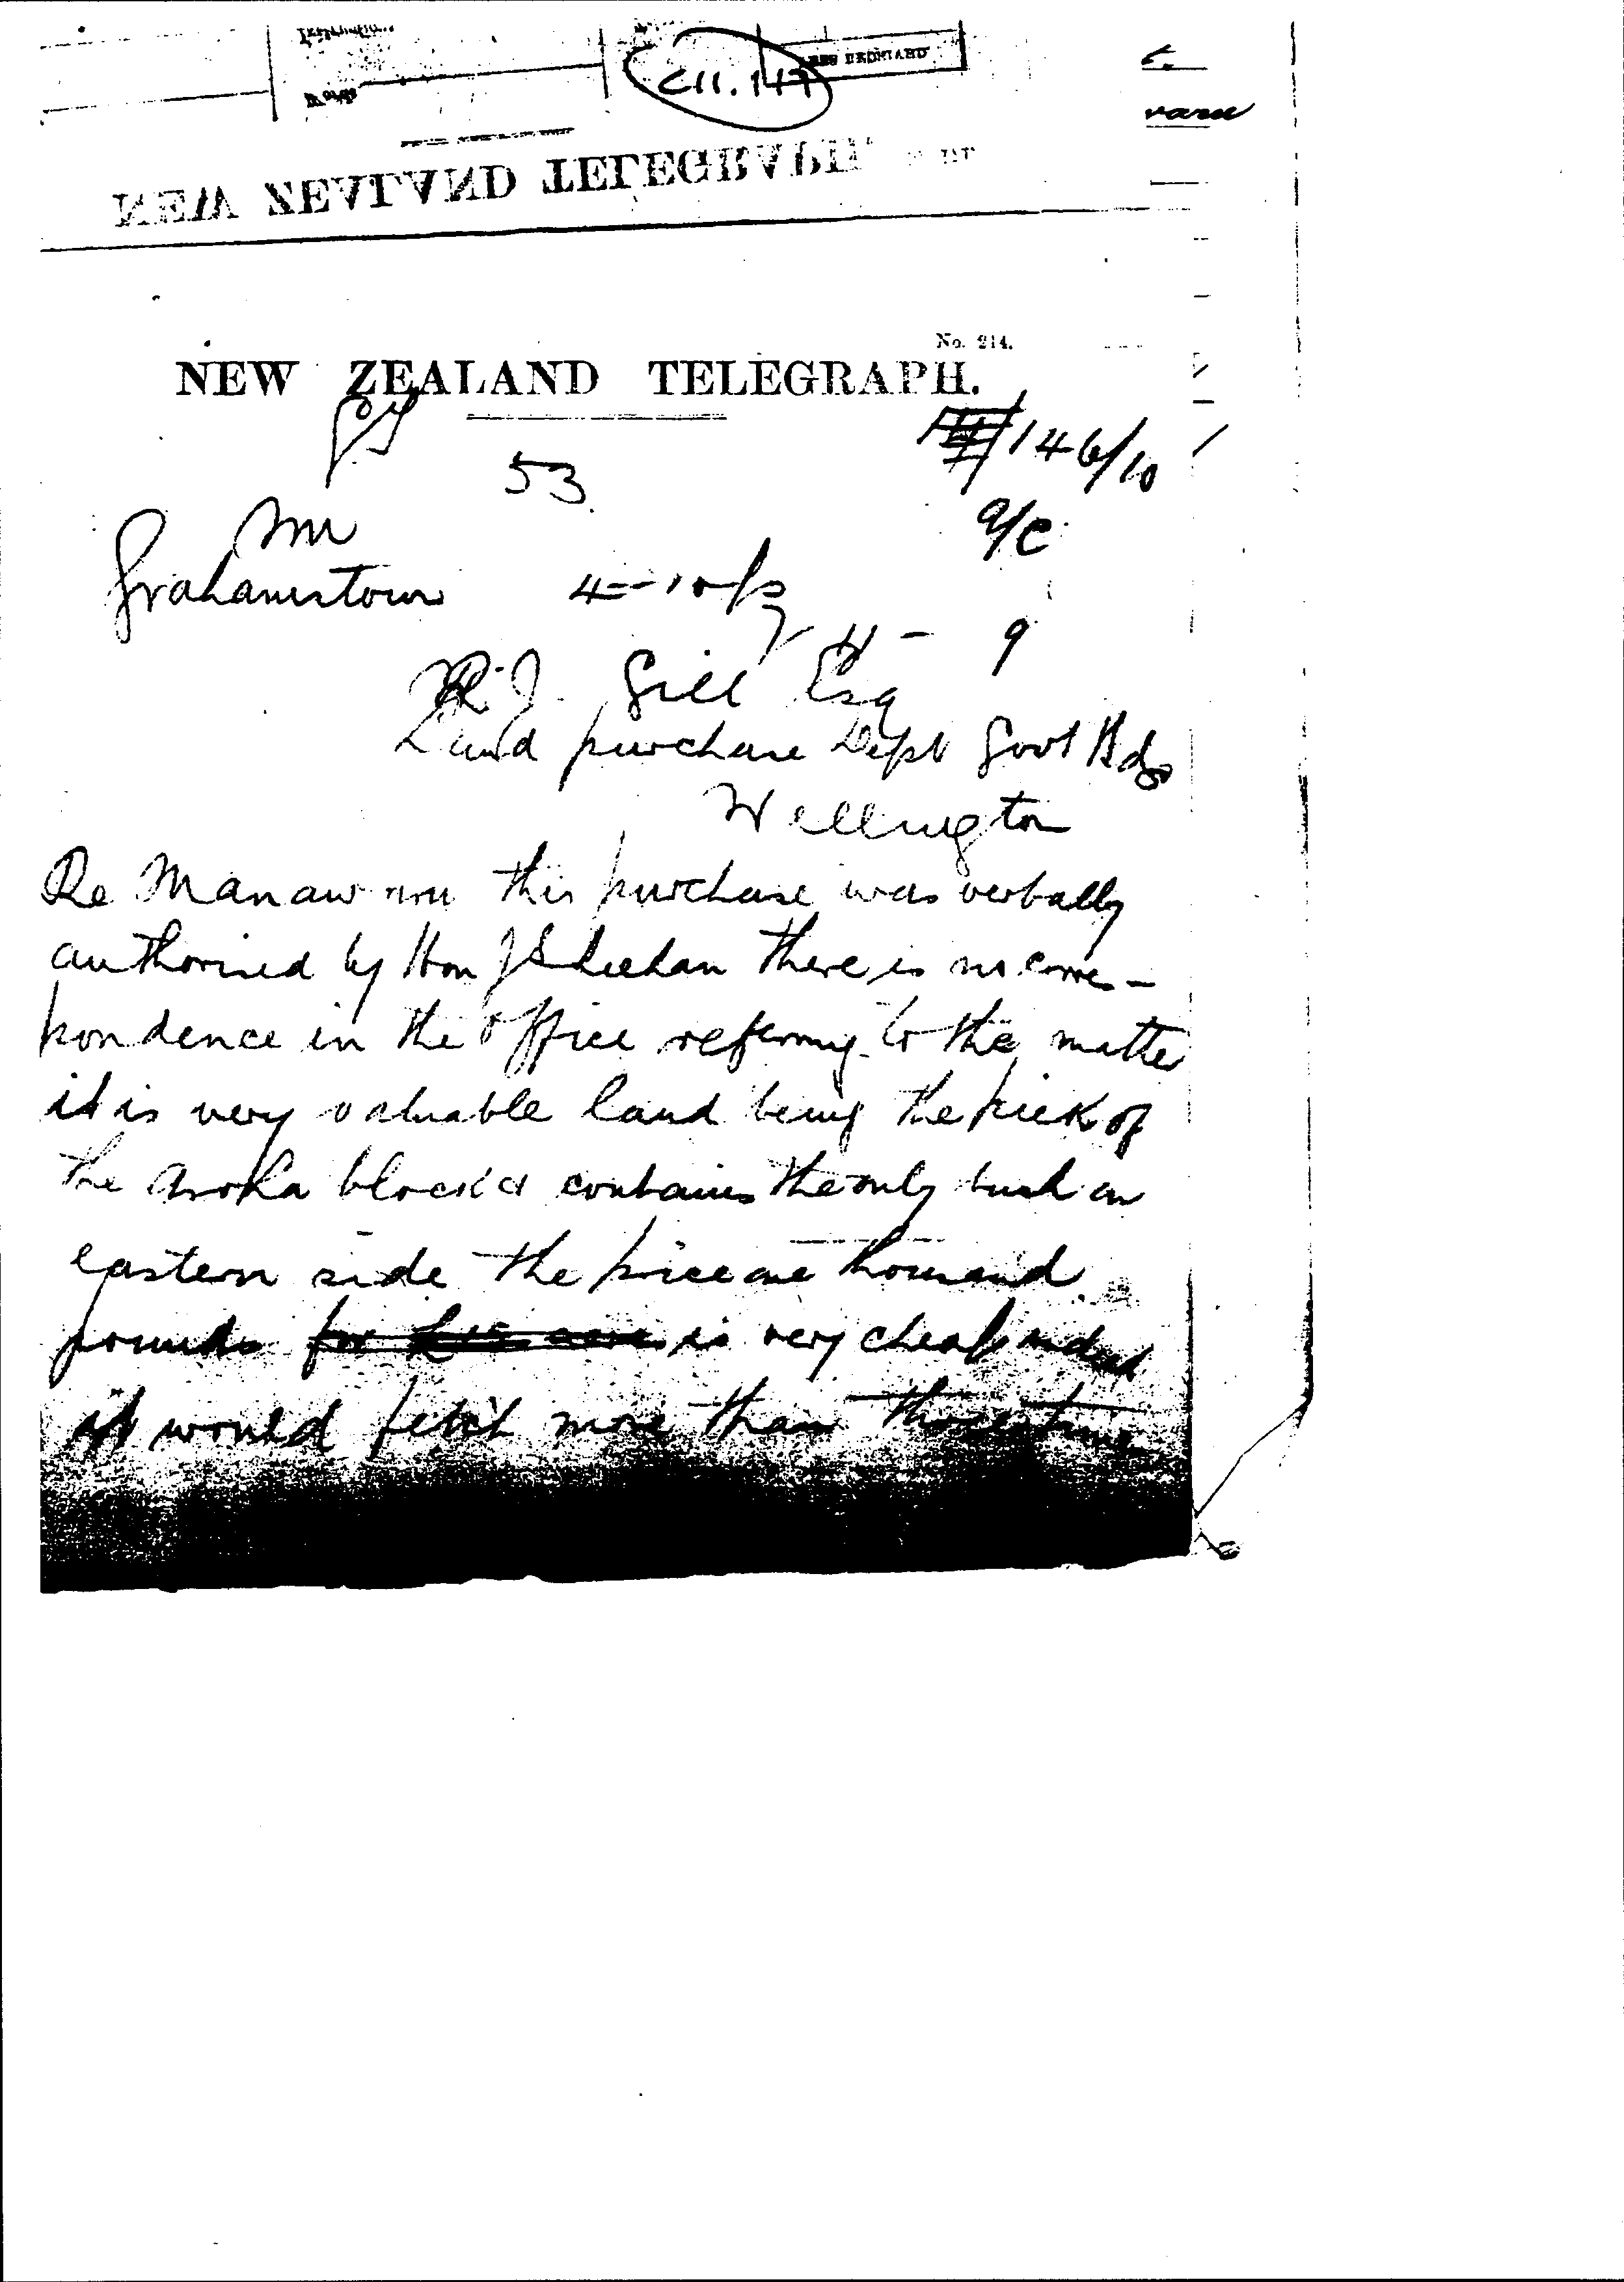 C11.147
NEW ZEALAND TELEGRAPH
No. 214.
NEW ZEALAND TELEGRAPH.
53
146/10
Grahamstown
R.J. Gill Esq
Land purchase Dept Govt Bdgs
Wellington
Re Manaw this purchase was verbally
authorised by Hon J Sheehan there is no corres-
pondence in the office referring to the matter
it is very valuable land being the pick of
the Aroha block & contains the only bush on
eastern side the price one thousand
pounds is very cheap indeed
it would fetch more than